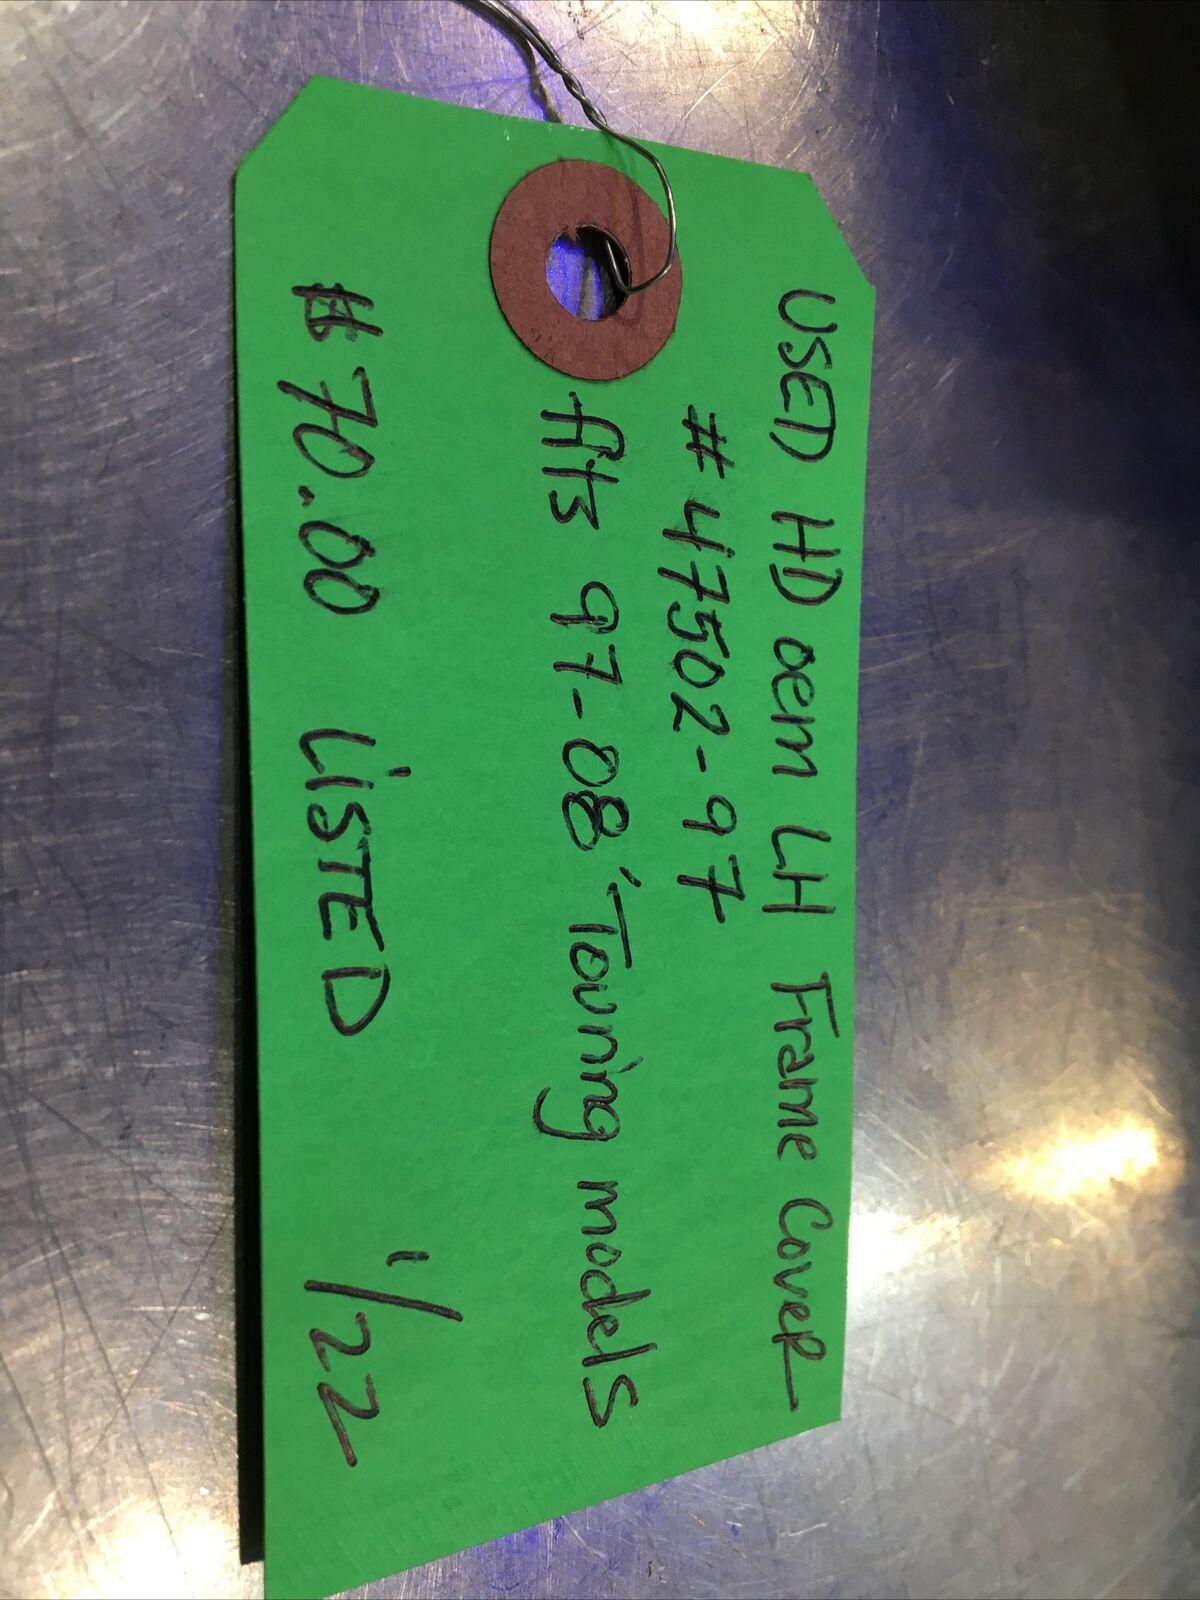 USED HD oem LH Frame Cover
#47502-97
fits 97-08' Touring models
$70.00 LiSTED 1/22